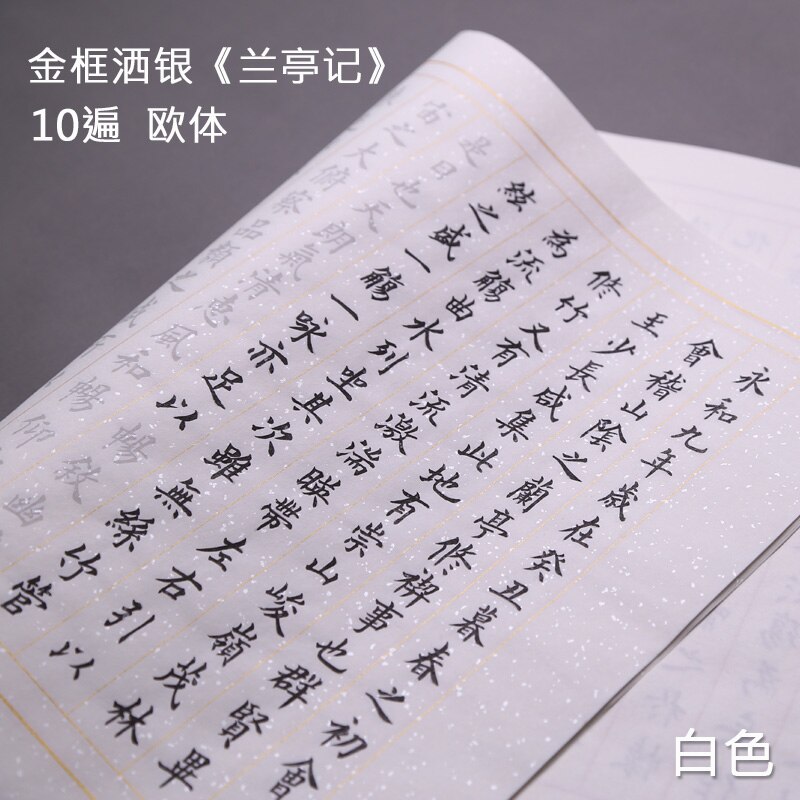 金框洒银《兰亭记》
10遍 欧体
永和九年歲在癸丑暮春之初會
會稽山陰之蘭亭修禊事也群賢畢
王少長咸集此地有崇山峻嶺茂林
修竹又有清流激湍暎帶左右引以
為流觴曲水列坐其次雖無絲竹管
絃之盛一觴一咏亦足以暢敘幽
是日也天朗氣清惠風和暢仰
宙之大俯察品類之盛所
白色